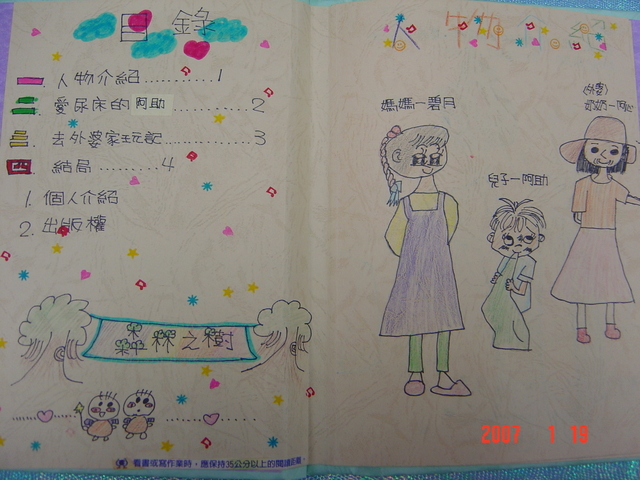 目錄
一. 人物介紹..........1
二. 愛尿床的阿助..........2
三. 去外婆家玩記..........3
四. 結局.........4
1. 個人介紹
2. 出版權
森林之樹
看書或寫作業時，應保持35公分以上的閱讀距離。
人物介紹
媽媽—碧月
兒子—阿助
2007 1 19